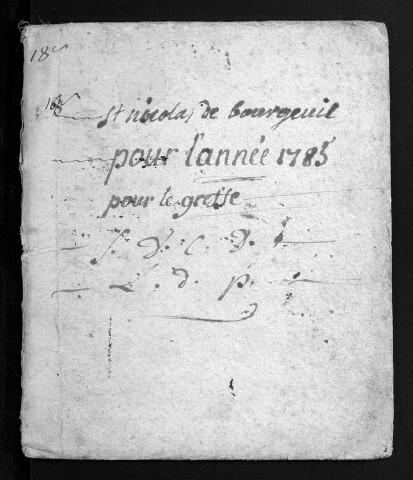 St nicolas de bourgeuil
pour l'année 1785
pour le greffe
S. D. C. D.
L. d. p.